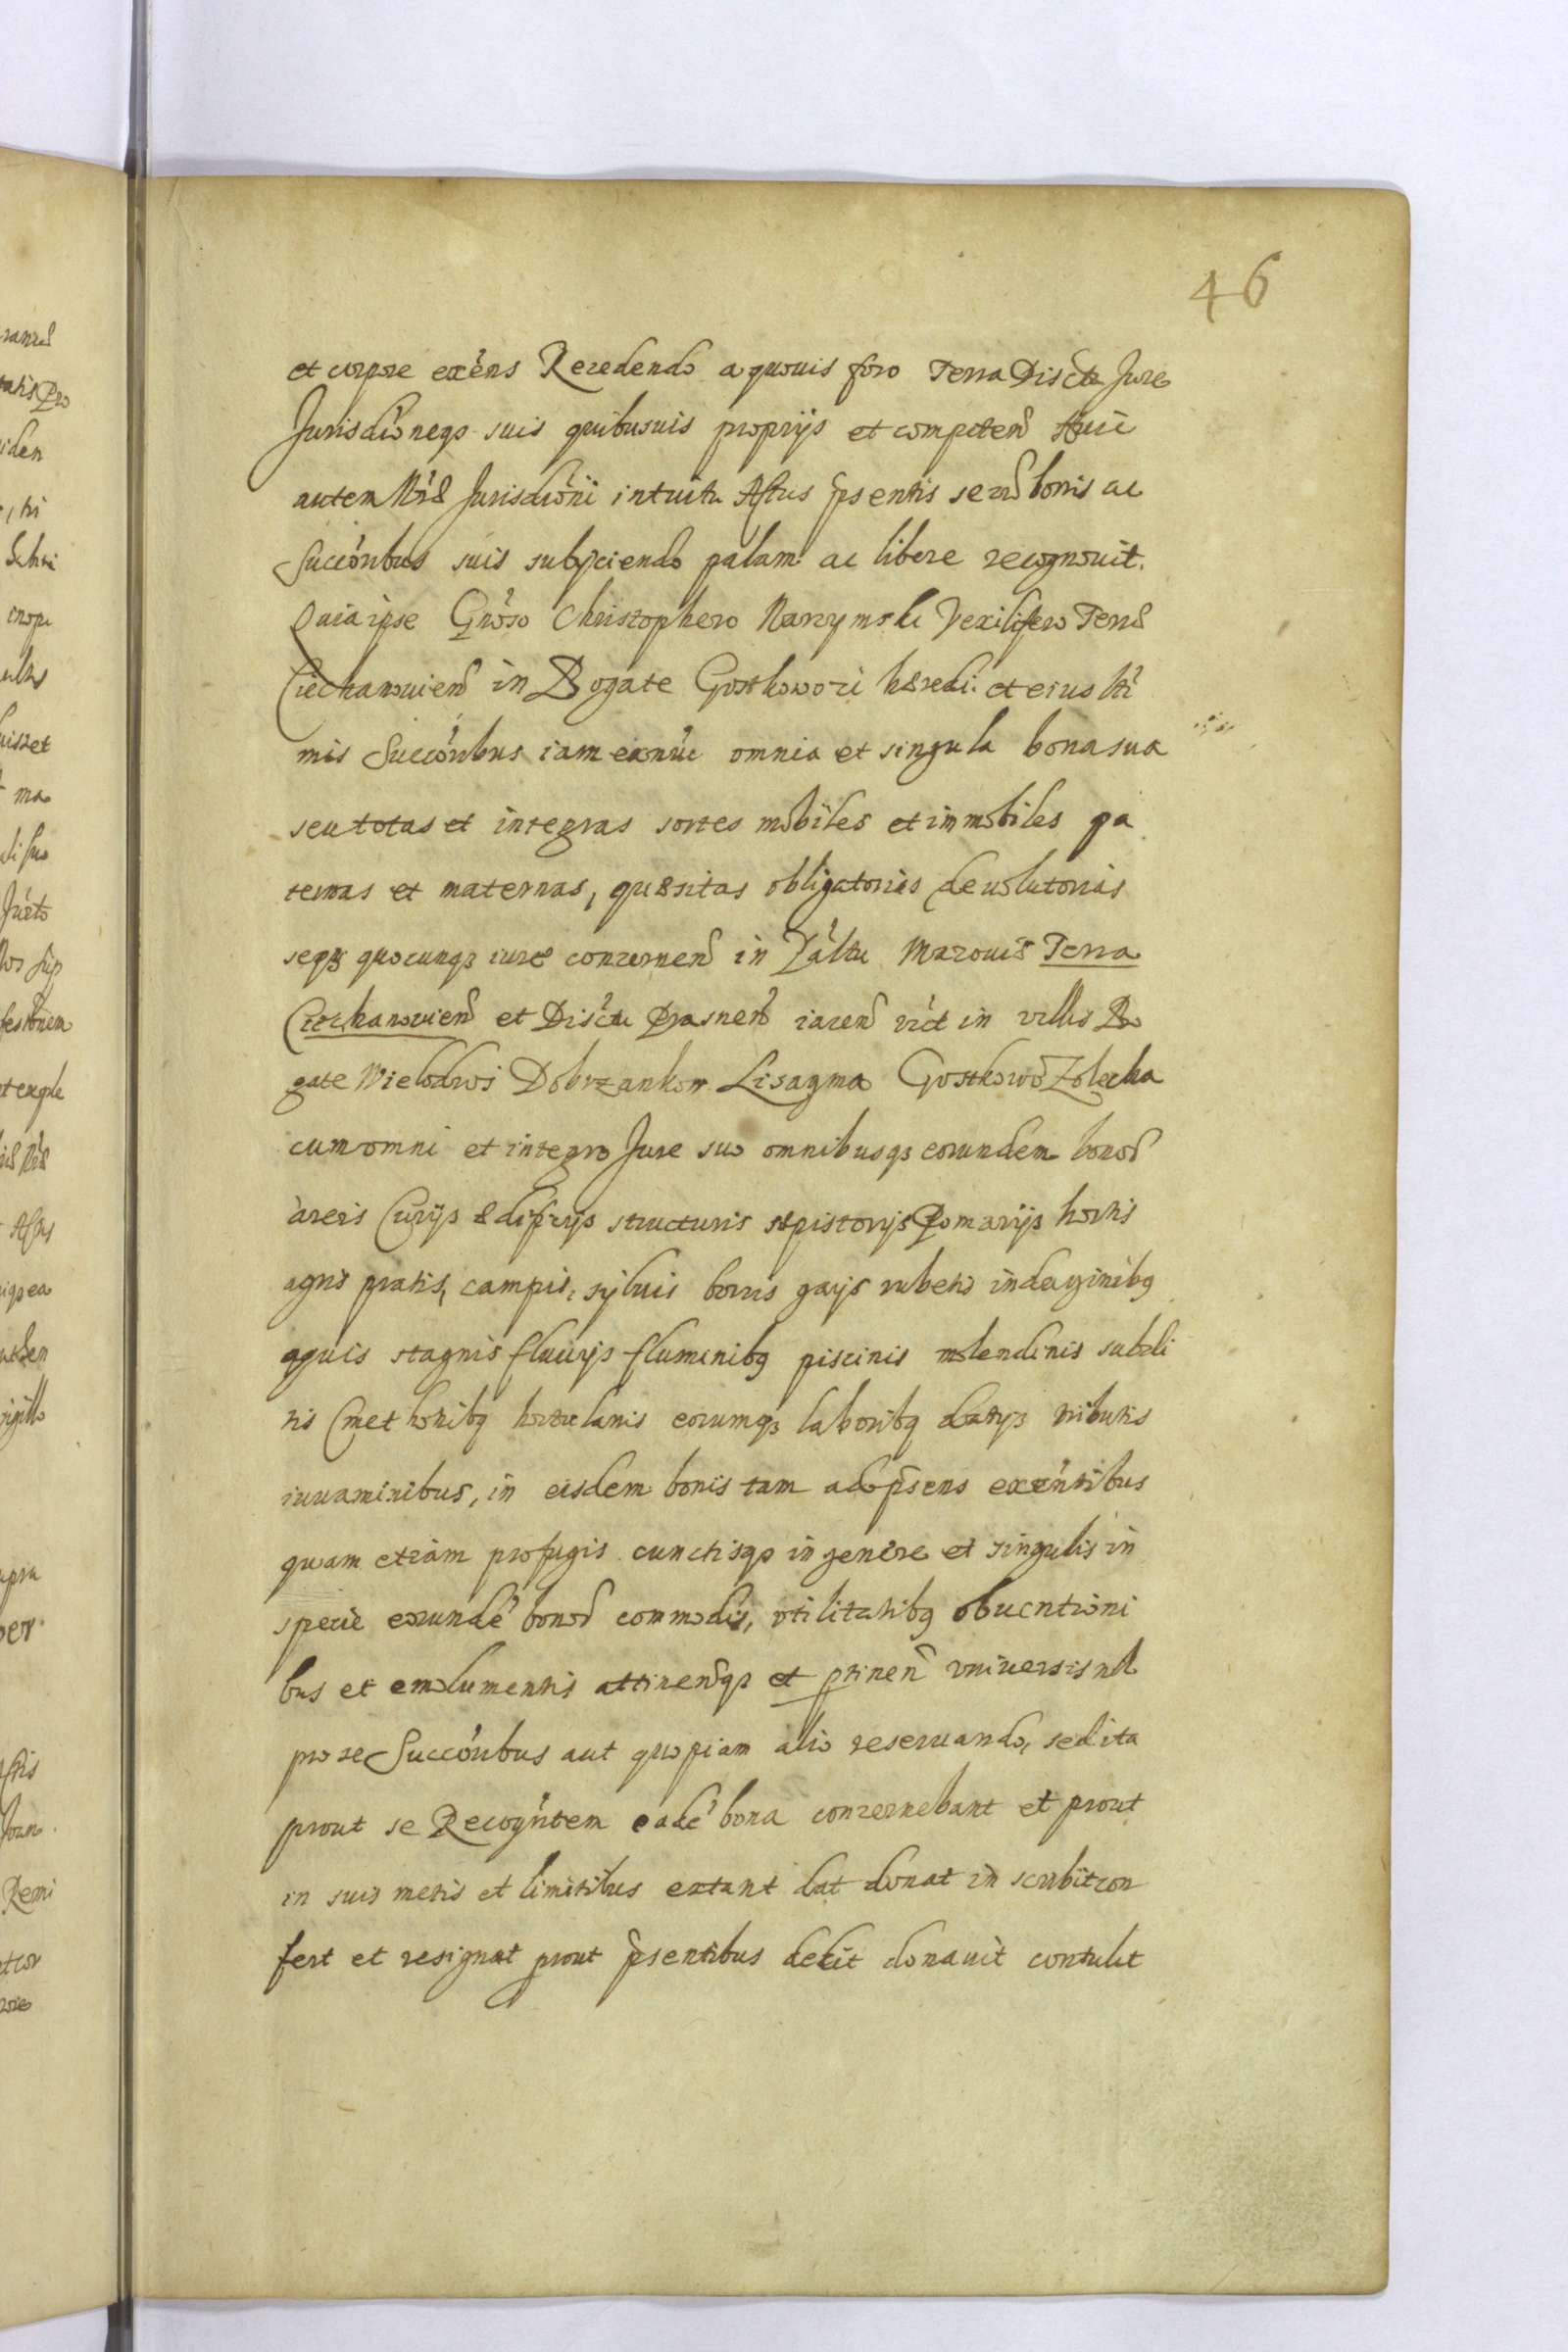 46
et corpore exẽns Recedendo a quouis foro Terra Distctu Jure
Jurisdiõneqз suis quibusuis proprijs et competeñ Huic
autem Nr̃æ Jurisdiõni intuitu Actus p̃sentis se cum bonis ac
Succõribus suis subijciendo palam ac libere recognouit.
Quia ipse Gñroso Christophero Narzymski Vexilifero Terræ
Ciechanouieñ in Bogate Gostkowo zi hæredi et eius lti
mis Succõribus iam exnũc omnia et singula bona sua
seu totas et integras sortes mobiles et immobiles pa
ternas et maternas, quæsitas obligatorias deuolutorias
seqз quocunqз iure concerneñ in Pãltu Mazouiæ Terra
Ciechanouieñ et Dis̃ctu Prasneñ iaceñ vĩct in villis Bo
gate Wielodroz Dobrzankow Lisagma Gostkowo Zolecka
cum omni et integro Jure suo omnibusqз eorundem bonoꝝ
areis Curijs ædificijs structuris sæpistorijs Pomarijs hortis
agris pratis, campis, syluis borris gays rubetis indaginibꝰ
aquis stagnis fluuijs fluminibꝰ piscinis molendinis subdi
tis Cmethonibꝰ hortulanis eorumqз laboribꝰ datijs tributis
iuuaminibus, in eisdem bonis tam ad p̃sens exẽntibus
quam etiam profugis cunctisqз in genere et singulis in
specie eorundẽ bonoꝝ commodis, vtilitatibꝰ obuentioni
bus et emolumentis attineñqз et ꝑtineñ vniuersis nil
pro se Succõribus aut quopiam alio reseruando, sed ita
prout se Recogñtem eadẽ bona concernebant et prout
in suis metis et limitibus extant dat donat inscribit con
fert et resignat prout p̃sentibus dedit donauit contulit